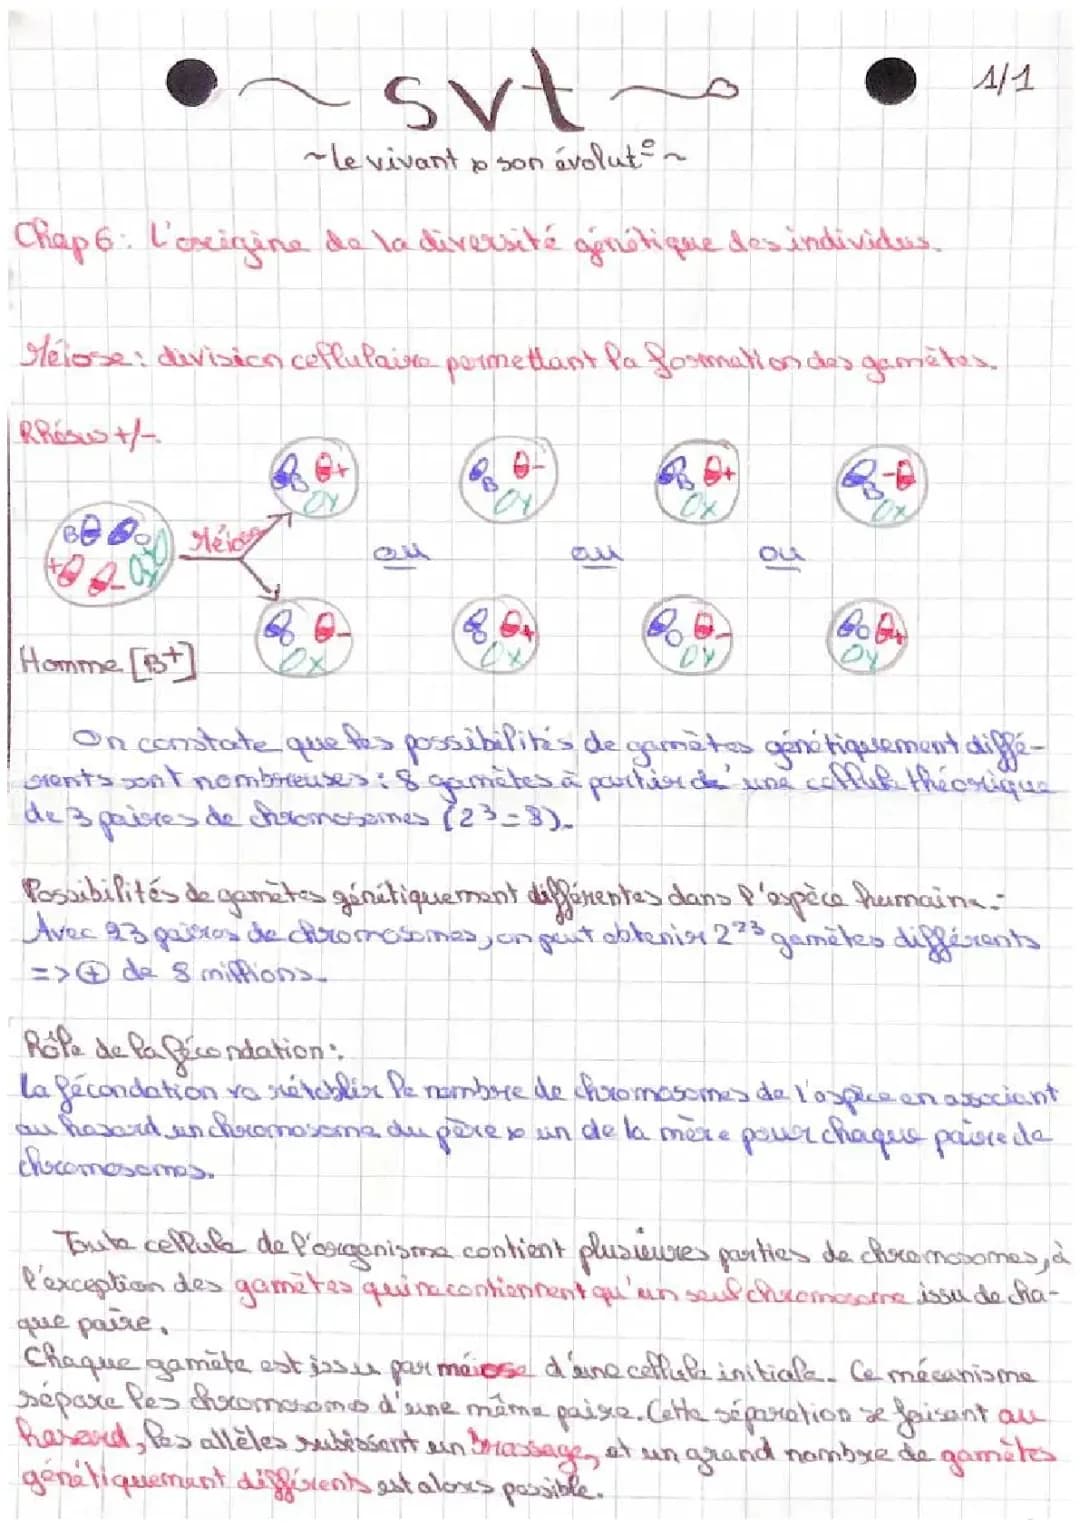 ~ svt ~
1/1
~ Le vivant & son évolut° ~
Chap 6: L'origine de la diversité génétique des individus.
Méiose: division cellulaire permettant la formation des gamètes.
Rhésus +/-
B O
+ -
Méiose
B + OY
B - OY
B + OX
B - OX
ou ou ou
- OX
+ OX
O - OY
O + OY
Homme [B+]
On constate que les possibilités de gamètes génétiquement diffé-
rents sont nombreuses: 8 gamètes à partir d'une cellule théorique
de 3 paires de chromosomes (2³=8).
Possibilités de gamètes génétiquement différentes dans l'espèce humaine:
Avec 23 paires de chromosomes, on peut obtenir 2²³ gamètes différents
=> ⊕ de 8 millions.
Rôle de la fécondation:
La fécondation va rétablir le nombre de chromosomes de l'espèce en associant
au hasard un chromosome du père & un de la mère pour chaque paire de
chromosomes.
Toute cellule de l'organisme contient plusieures parties de chromosomes, à
l'exception des gamètes qui ne contiennent qu'un seul chromosome issu de cha-
que paire.
Chaque gamète est issu par méiose d'une cellule initiale. Ce mécanisme
sépare les chromosomes d'une même paire. Cette séparation se faisant au
hasard, les allèles subissent un brassage, et un grand nombre de gamètes
génétiquement différents est alors possible.